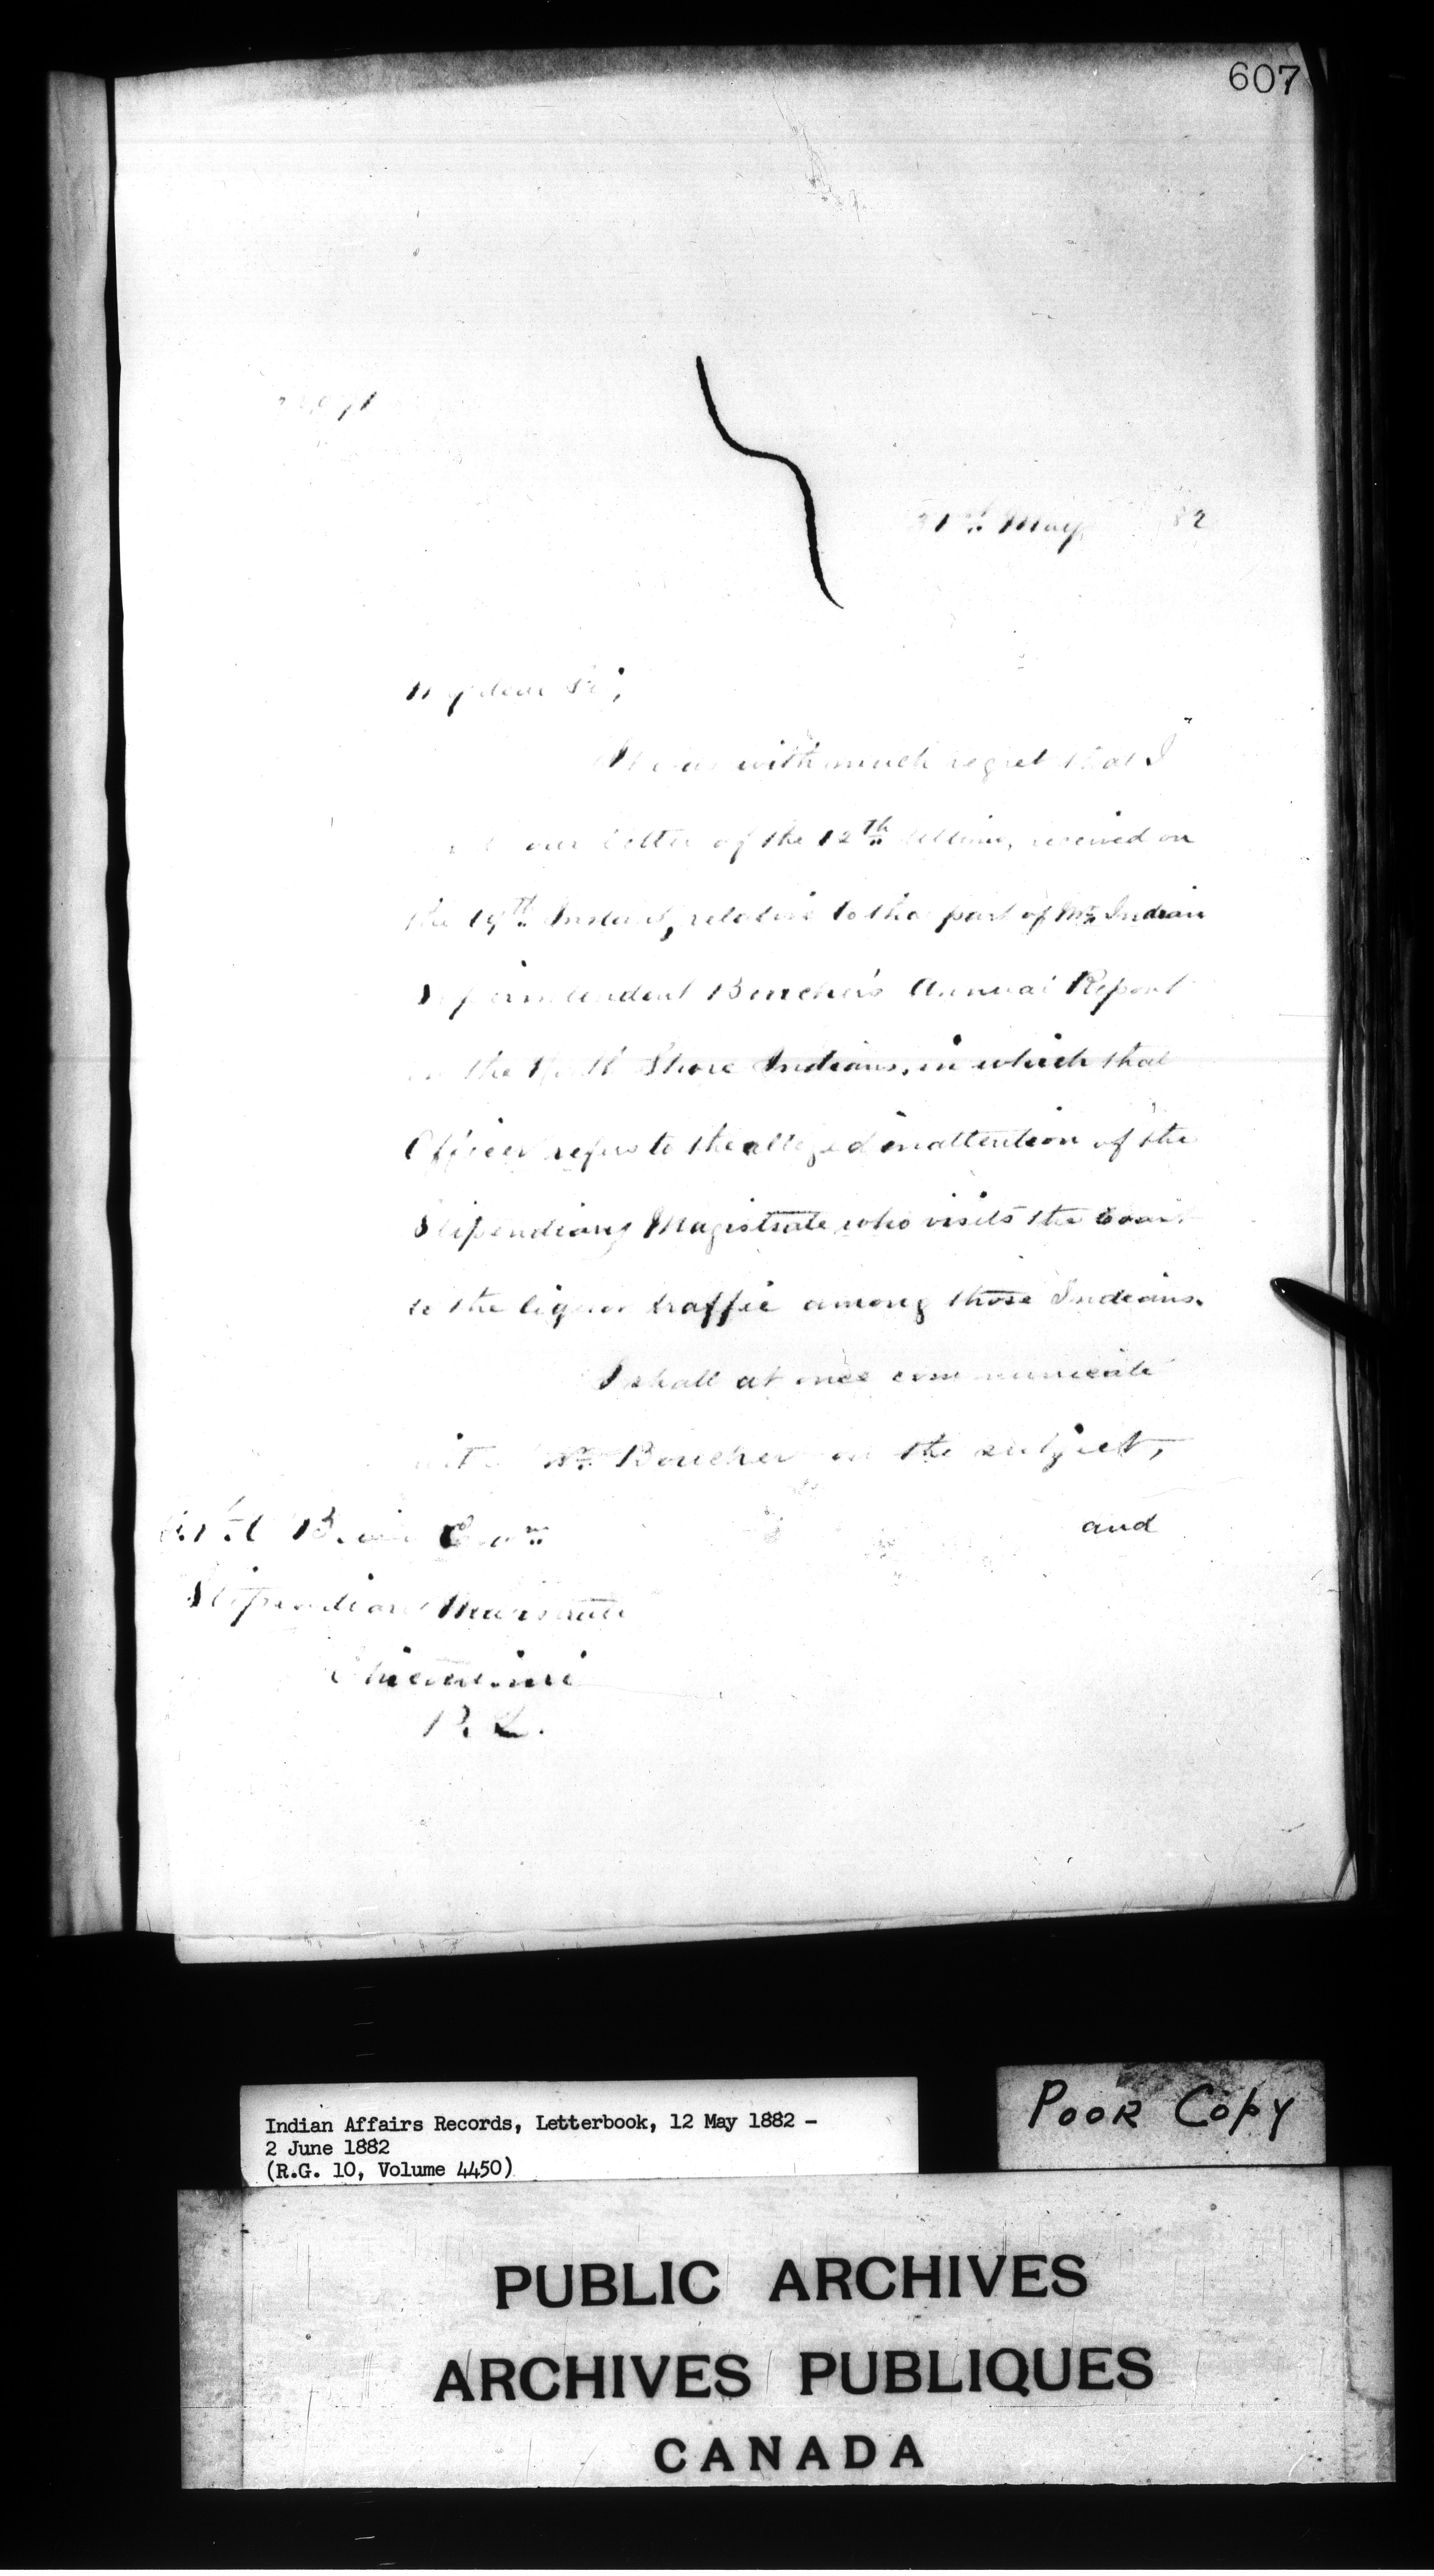 607
31st May 82
My dear Sir,
It was with much regret that I
our letter of the 12th Ultimo, received on
the 19th Instant, relative to the part of Mr. Indian
Superintendent Boucher's Annual Report
on the North Shore Indians, in which that
Officer refers to the alleged inattention of the
Stipendiary Magistrate who visits the Coast
to the liquor traffic among those Indians.
I shall at once communicate
with Mr. Boucher on the subject,
and
Stipendiary Magistrate
Chicoutimi
P. Q.
Indian Affairs Records, Letterbook, 12 May 1882 -
2 June 1882
(R.G. 10, Volume 4450)
POOR COPY
PUBLIC ARCHIVES
ARCHIVES PUBLIQUES
CANADA